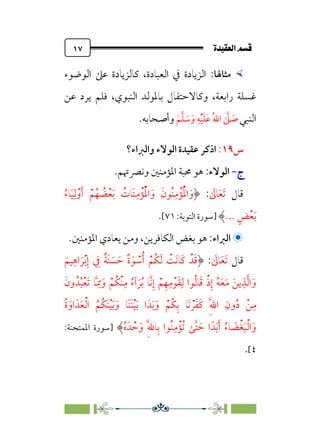 ١٧
قسم العقيدة
مثالها: الزيادة في العبادة، كالزيادة على الوضوء
غسلة رابعة، وكالاحتفال بالمولد النبوي، فلم يرد عن
النبي صَلَّى اللهُ عَلَيْهِ وَسَلَّمَ وأصحابه.
س١٩: اذكر عقيدة الولاء والبراء؟
ج- الولاء: هو محبة المؤمنين ونصرتهم.
قال تَعَالَىٰ: ﴿وَالْمُؤْمِنُونَ وَالْمُؤْمِنَاتُ بَعْضُهُمْ أَوْلِيَاءُ
بَعْضٍ ...﴾ [سورة التوبة: ٧١].
البراء: هو بغض الكافرين، ومن يعادي المؤمنين.
قال تَعَالَىٰ: ﴿قَدْ كَانَتْ لَكُمْ أُسْوَةٌ حَسَنَةٌ فِي إِبْرَاهِيمَ
وَالَّذِينَ مَعَهُ إِذْ قَالُوا لِقَوْمِهِمْ إِنَّا بُرَآءُ مِنْكُمْ وَمِمَّا تَعْبُدُونَ
مِنْ دُونِ اللَّهِ كَفَرْنَا بِكُمْ وَبَدَا بَيْنَنَا وَبَيْنَكُمُ الْعَدَاوَةُ
وَالْبَغْضَاءُ أَبَدًا حَتَّىٰ تُؤْمِنُوا بِاللَّهِ وَحْدَهُ﴾ [سورة الممتحنة:
٤].